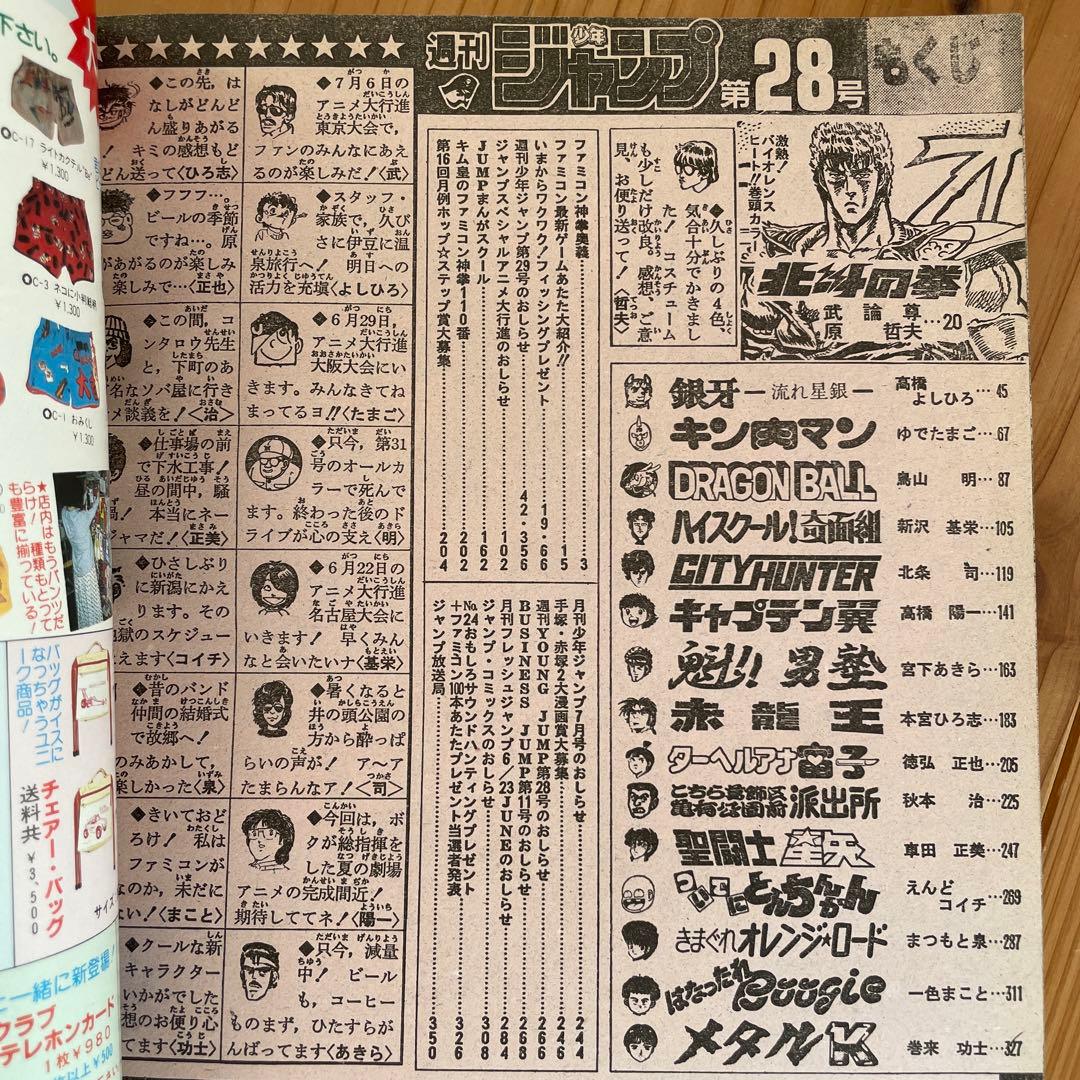 週刊少年ジャンプ 第28号 もくじ
激熱!
バイオレンス
ヒート!!巻頭カラー
北斗の拳
武論尊
原哲夫…20
銀牙―流れ星銀― 高橋よしひろ…45
キン肉マン ゆでたまご…67
DRAGON BALL 鳥山 明…87
ハイスクール!奇面組 新沢 基栄…105
CITY HUNTER 北条 司…119
キャプテン翼 高橋 陽一…141
魁!!男塾 宮下あきら…163
赤龍王 本宮ひろ志…183
ターヘルアナ富子 徳弘 正也…205
こちら葛飾区亀有公園前派出所 秋本 治…225
聖闘士星矢 車田 正美…247
ついでにとんちんかん えんどコイチ…269
きまぐれオレンジ★ロード まつもと泉…287
はなったれBoogie 一色まこと…311
メタルK 巻来 功士…327
◆久しぶりの4色、
気合十分でかきまし
た! コスチューム
も少しだけ改良。感想、ご意
見、お便り送って!〈哲夫〉
ファミコン神拳奥義……3
ファミコン最新ゲームあたた大紹介!!……15
いまからワクワク!フィッシングプレゼント……19・66
週刊少年ジャンプ第29号のおしらせ……42・356
ジャンプスペシャルアニメ大行進のおしらせ……102
JUMPまんがスクール……162
キム皇のファミコン神拳110番……202
第16回月例ホップ☆ステップ賞大募集……204
月刊少年ジャンプ7月号のおしらせ……244
手塚・赤塚2大漫画賞大募集……246
週刊YOUNG JUMP第28号のおしらせ……266
BUSINESS JUMP第11号のおしらせ……268
月刊フレッシュジャンプ6/23JUNEのおしらせ……284
ジャンプ・コミックスのおしらせ……308
No.24おもしろサウンドハンティングプレゼント
+ファミコン100本あたたプレゼント当選者発表……326
ジャンプ放送局……350
◆7月6日の
アニメ大行進
東京大会で,
ファンのみんなにあえ
るのが楽しみだ!〈武〉
◆スタッフ・
家族で,久び
さに伊豆に温
泉旅行へ! 明日への
活力を充塡〈よしひろ〉
◆6月29日,
アニメ大行進
大阪大会にい
きます。みんなきてね
まってるヨ!!〈たまご〉
◆只今,第31
号のオールカ
ラーで死んで
ます。終わった後のド
ライブが心の支え〈明〉
◆6月22日の
アニメ大行進
名古屋大会に
いきます! 早くみん
なと会いたいナ〈基栄〉
◆暑くなると
井の頭公園の
方から酔っぱ
らいの声が! ア〜ア
たまらんなア!〈司〉
◆今回は,ボ
クが総指揮を
した夏の劇場
アニメの完成間近!
期待しててネ!〈陽一〉
◆只今,減量
中! ビール
も,コーヒー
ものまず,ひたすらが
んばってます〈あきら〉
◆この先,は
なしがどんど
ん盛りあがる
! キミの感想もど
どん送って〈ひろ志〉
◆フフフ…,
ビールの季節
ですね…。原
があがるのが楽しみ
楽しみで…〈正也〉
◆この間,コ
ンタロウ先生
と,下町のあ
名なソバ屋に行き
メ談義を!〈治〉
◆仕事場の前
で下水工事!
昼の間中,騒
! 本当にネー
ジャマだ!〈正美〉
◆ひさしぶり
に新潟にかえ
ります。その
獄のスケジュー
えます〈コイチ〉
◆昔のバンド
仲間の結婚式
で故郷へ!
のみあかして,
楽しかった〈泉〉
◆きいておど
ろけ! 私は
ファミコンが
なのか,未だに
ない!〈まこと〉
◆クールな新
キャラクター
いかがでした
想のお便り心
てます〈功士〉
下さい。
C-17 ライトカクテル"Be"
¥1,300
C-3 ネコに小判総柄
¥1,300
C-1 おみくじ
¥1,300
★店内はもうパンツだ
らけ! 種類もとって
も豊富に揃っている!
バッグがイスに
なっちゃうユニ
ーク商品!
チェアー・バッグ
送料共 ¥3,500
サイズ
一緒に新登場!
クラブ
テレホンカード
1枚¥980
以上¥500